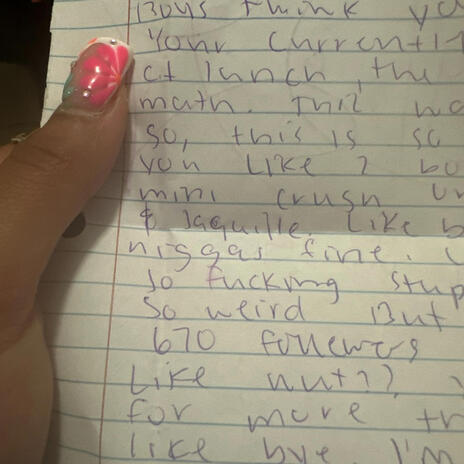 Boys think yo
Your currentl
at lunch, the
math. This wa
so, this is so
you like 2 bo
mini crush
& Jaquille. Like b
niggas fine.
so fucking stup
so weird But
670 followers
Like nut??
for more th
like bye. I'm